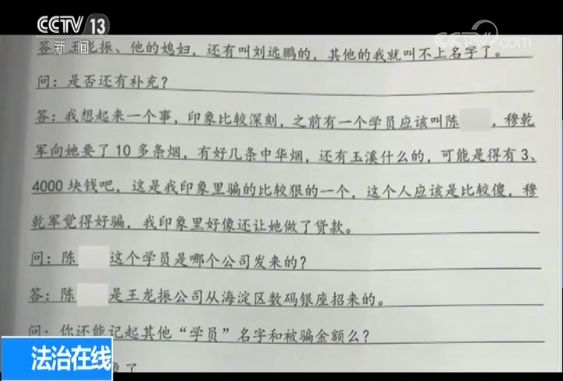 CCTV 13
新闻
CCTV.com
答：王龙振、他的媳妇，还有叫刘远鹏的，其他的我就叫不上名字了。
问：是否还有补充？
答：我想起来一个事，印象比较深刻，之前有一个学员应该叫陈 ，穆乾
军向她要了10多条烟，有好几条中华烟，还有玉溪什么的，可能是得有3、
4000块钱吧，这是我印象里骗的比较狠的一个，这个人应该是比较傻，穆
乾军觉得好骗，我印象里好像还让她做了贷款。
问：陈 这个学员是哪个公司发来的？
答：陈 是王龙振公司从海淀区数码银座招来的。
问：你还能记起其他“学员”名字和被骗金额么？
法治在线